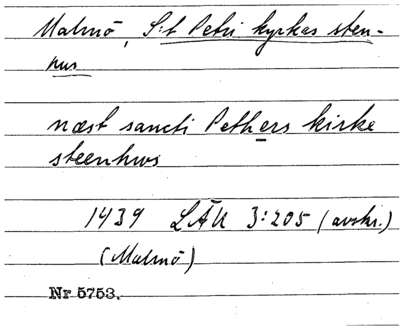 Malmö, S:t Petri kyrkas sten-
hus
næst sancti Pethers kirke
steenhws
1439 LÄU 3:205 (avskr.)
(Malmö)
Nr 5753.